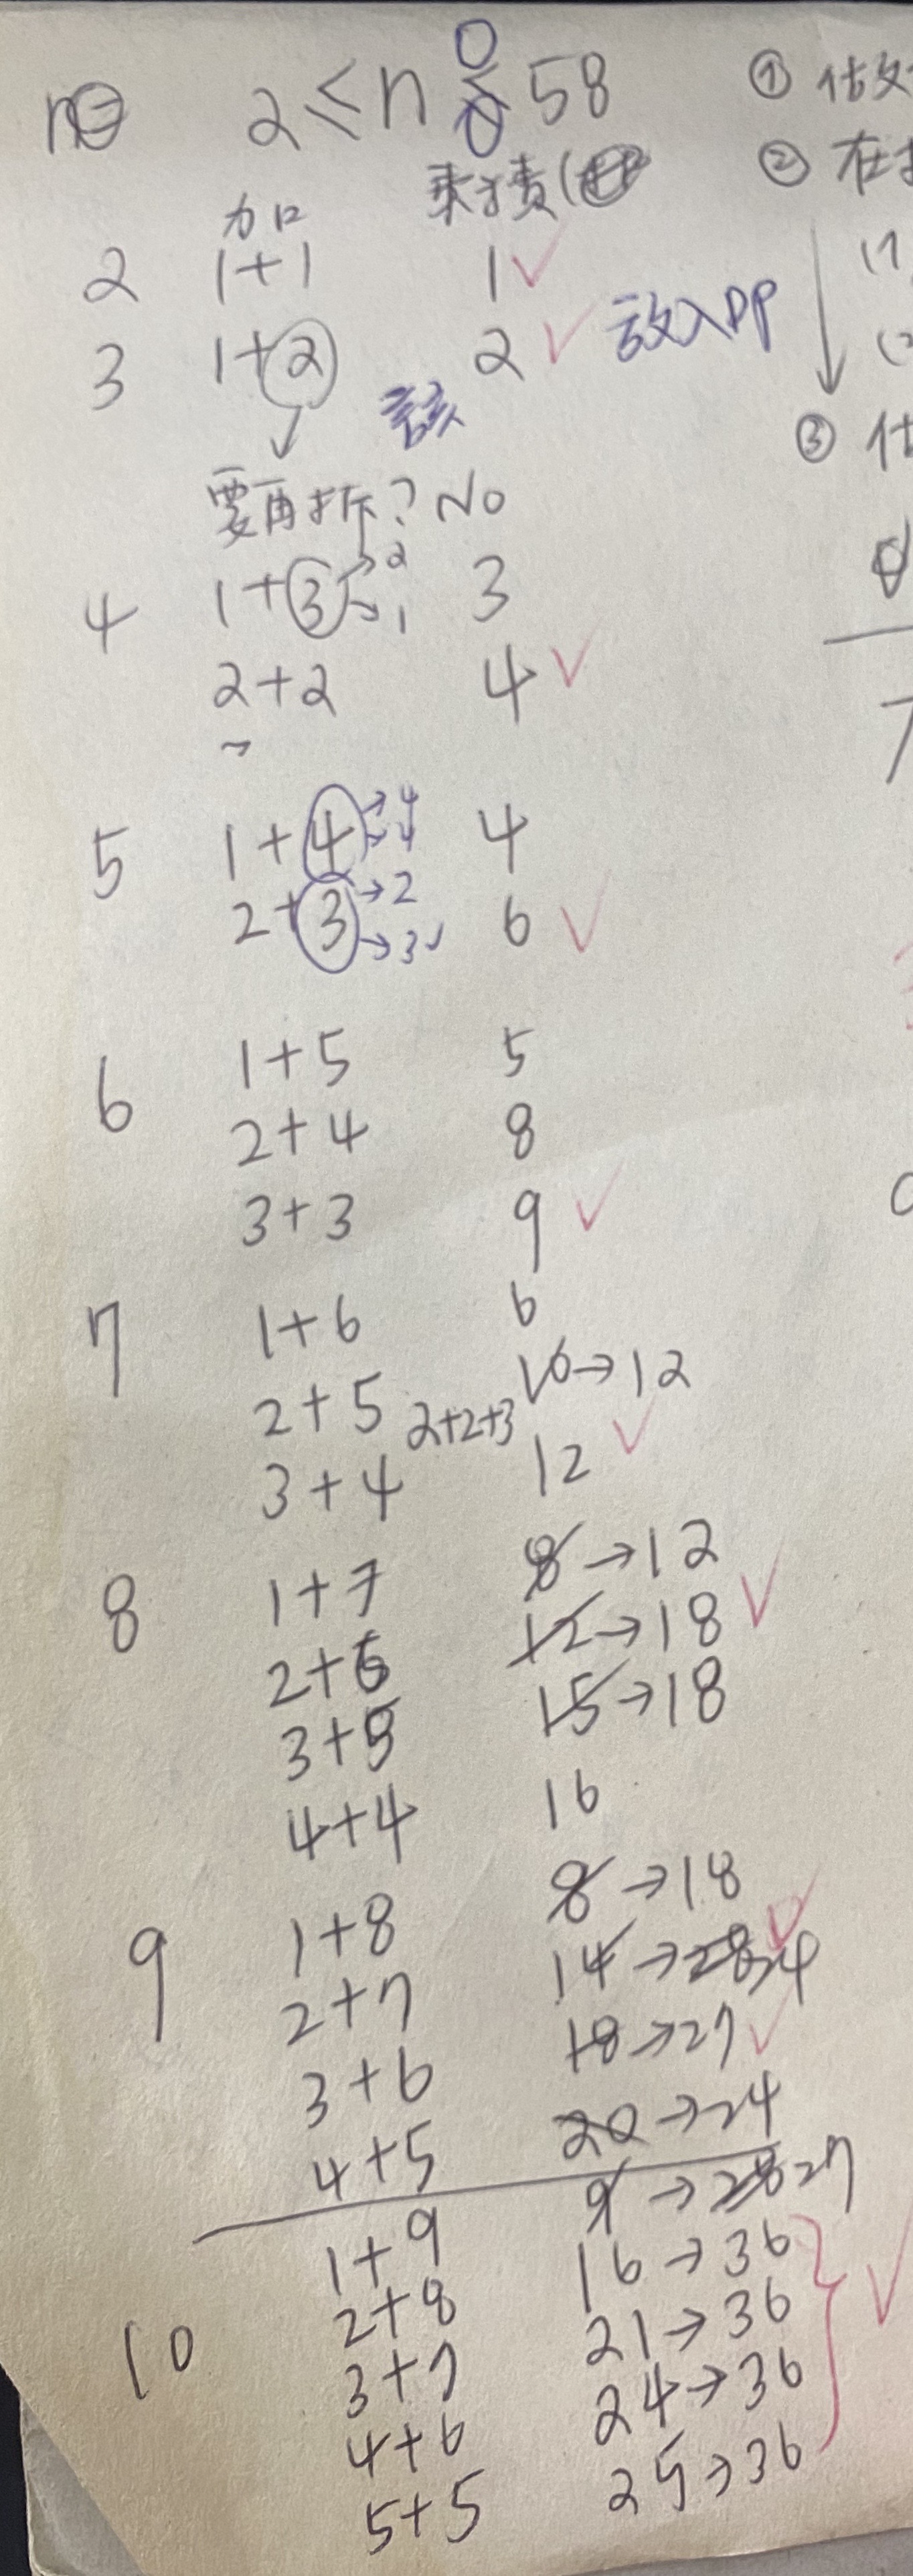 n 2 ≤ n ≤ 58
加 乘積(
2 1+1 1 ✓
3 1+2 2 ✓ 放入DP
↓
要再拆? No
4 1+3 → 2 → 1 3
2+2 4 ✓
5 1+4 → 4 → 4 4
2+3 → 2 → 3 ✓ 6 ✓
6 1+5 5
2+4 8
3+3 9 ✓
7 1+6 6
2+5 2+2+3 10 → 12
3+4 12 ✓
8 1+7 8 → 12
2+6 12 → 18 ✓
3+5 15 → 18
4+4 16
9 1+8 8 → 18
2+7 14 → 28 24
3+6 18 → 27 ✓
4+5 20 → 24
10 1+9 9 → 28 27
2+8 16 → 36
3+7 21 → 36
4+6 24 → 36
5+5 25 → 36
① 估
② 在
(1
③ 估